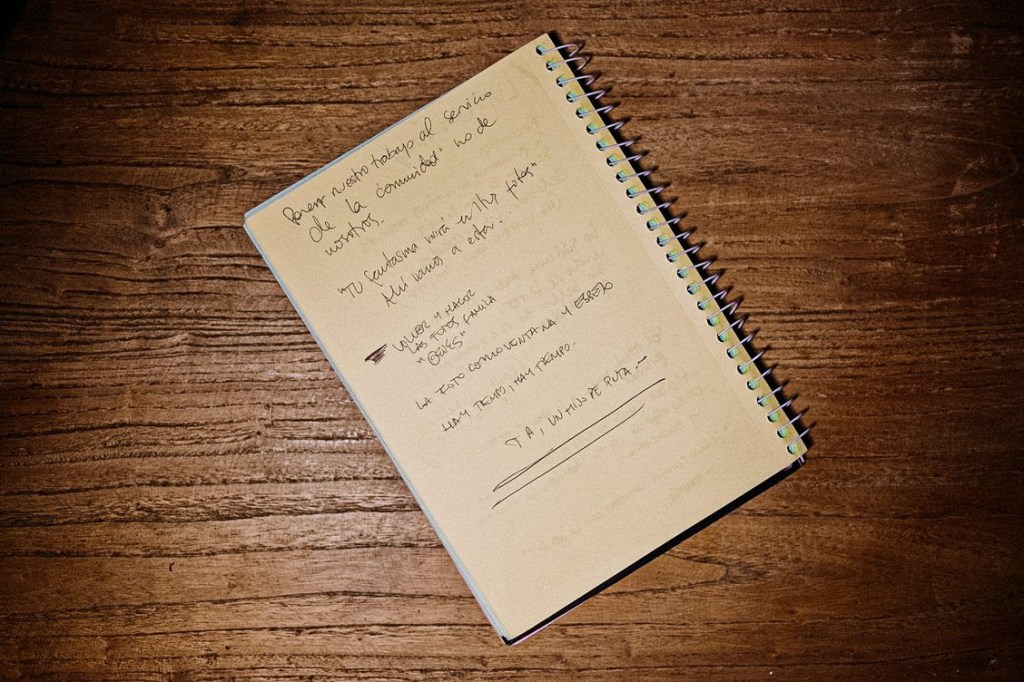 Poner nuestro trabajo al servicio
de la comunidad" no de
nosotros.
"Tu fantasma vivirá en tus fotos"
Ahí vamos a estar.
VOLVER Y HACER
LAS FOTOS FAMILIA
LA FOTO COMO VENTANA Y ESPEJO
HAY TIEMPO, HAY TIEMPO.
TA, UN HIJO DE PUTA.